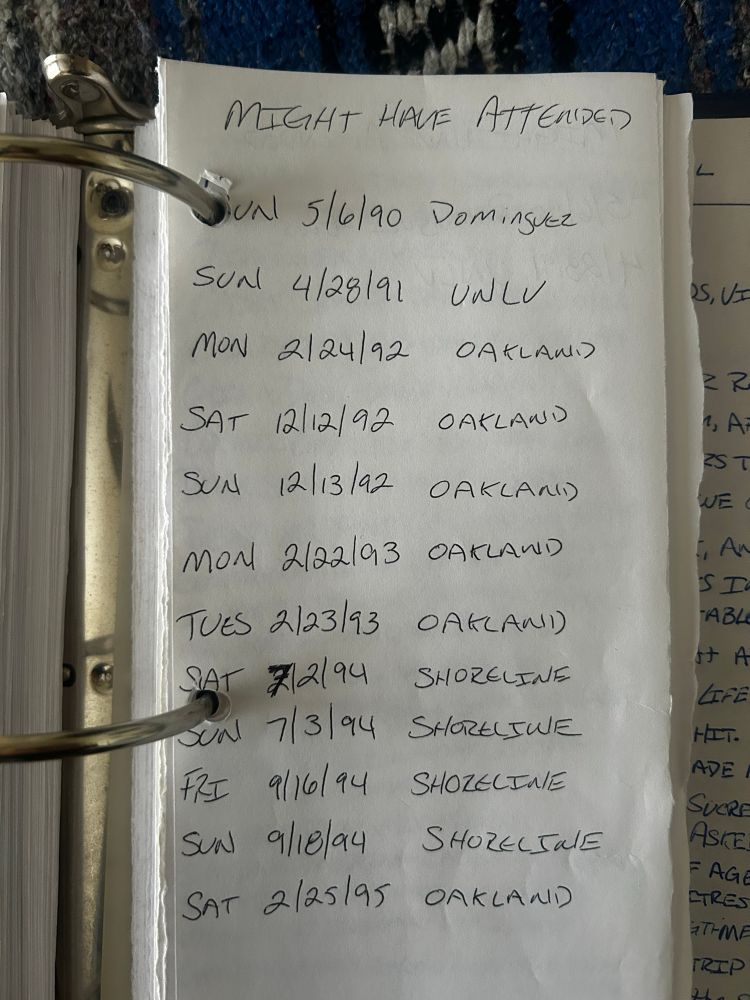 MIGHT HAVE ATTENDED
SUN 5/6/90 DOMINGUEZ
SUN 4/28/91 UNLV
MON 2/24/92 OAKLAND
SAT 12/12/92 OAKLAND
SUN 12/13/92 OAKLAND
MON 2/22/93 OAKLAND
TUES 2/23/93 OAKLAND
SAT 7/2/94 SHORELINE
SUN 7/3/94 SHORELINE
FRI 9/16/94 SHORELINE
SUN 9/18/94 SHORELINE
SAT 2/25/95 OAKLAND
L
WE
LIFE
HIT.
ADE
F AGE
TRIP